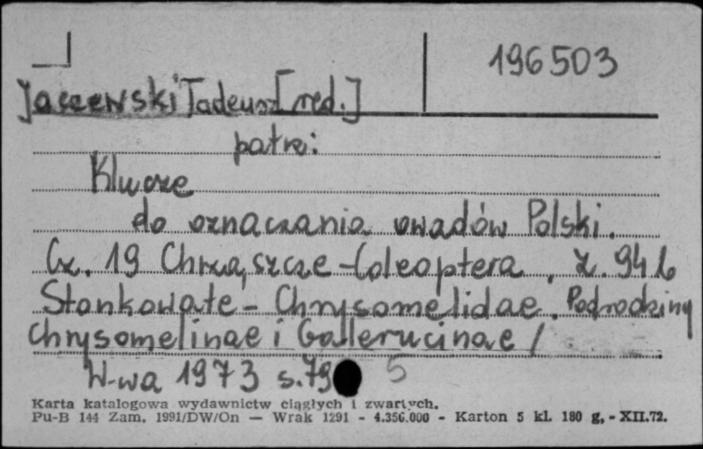 196503
Jaczewski Tadeusz [red.]
patrz:
Klucze
do oznaczania owadów Polski.
Cz. 19 Chrząszcze - Coleoptera. Z. 94 b
Stonkowate - Chrysomelidae. Podrodziny
Chrysomelinae i Gallerucinae /
W-wa 1973 s. 79 5
Karta katalogowa wydawnictw ciągłych i zwartych.
Pu-B 144 Zam. 1991/DW/On — Wrak 1291 - 4.356.000 - Karton 5 kl. 180 g. - XII.72.